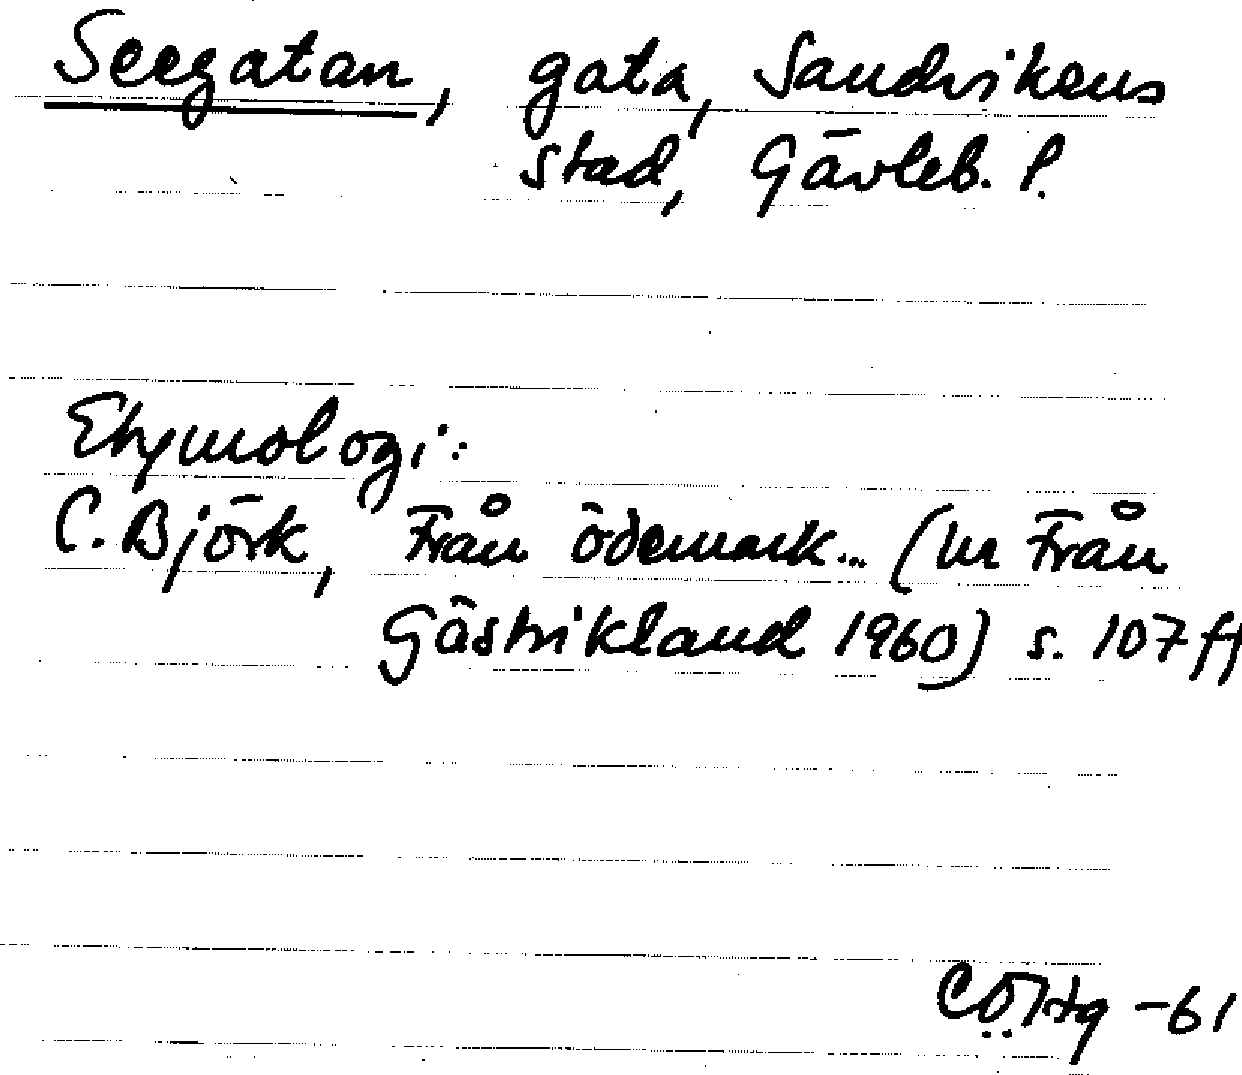 Seegatan, gata, Sandvikens
stad, Gävleb. l.
Etymologi:
C. Björk, Från ödemark... (ur Från
Gästrikland 1960) s. 107 ff
-61